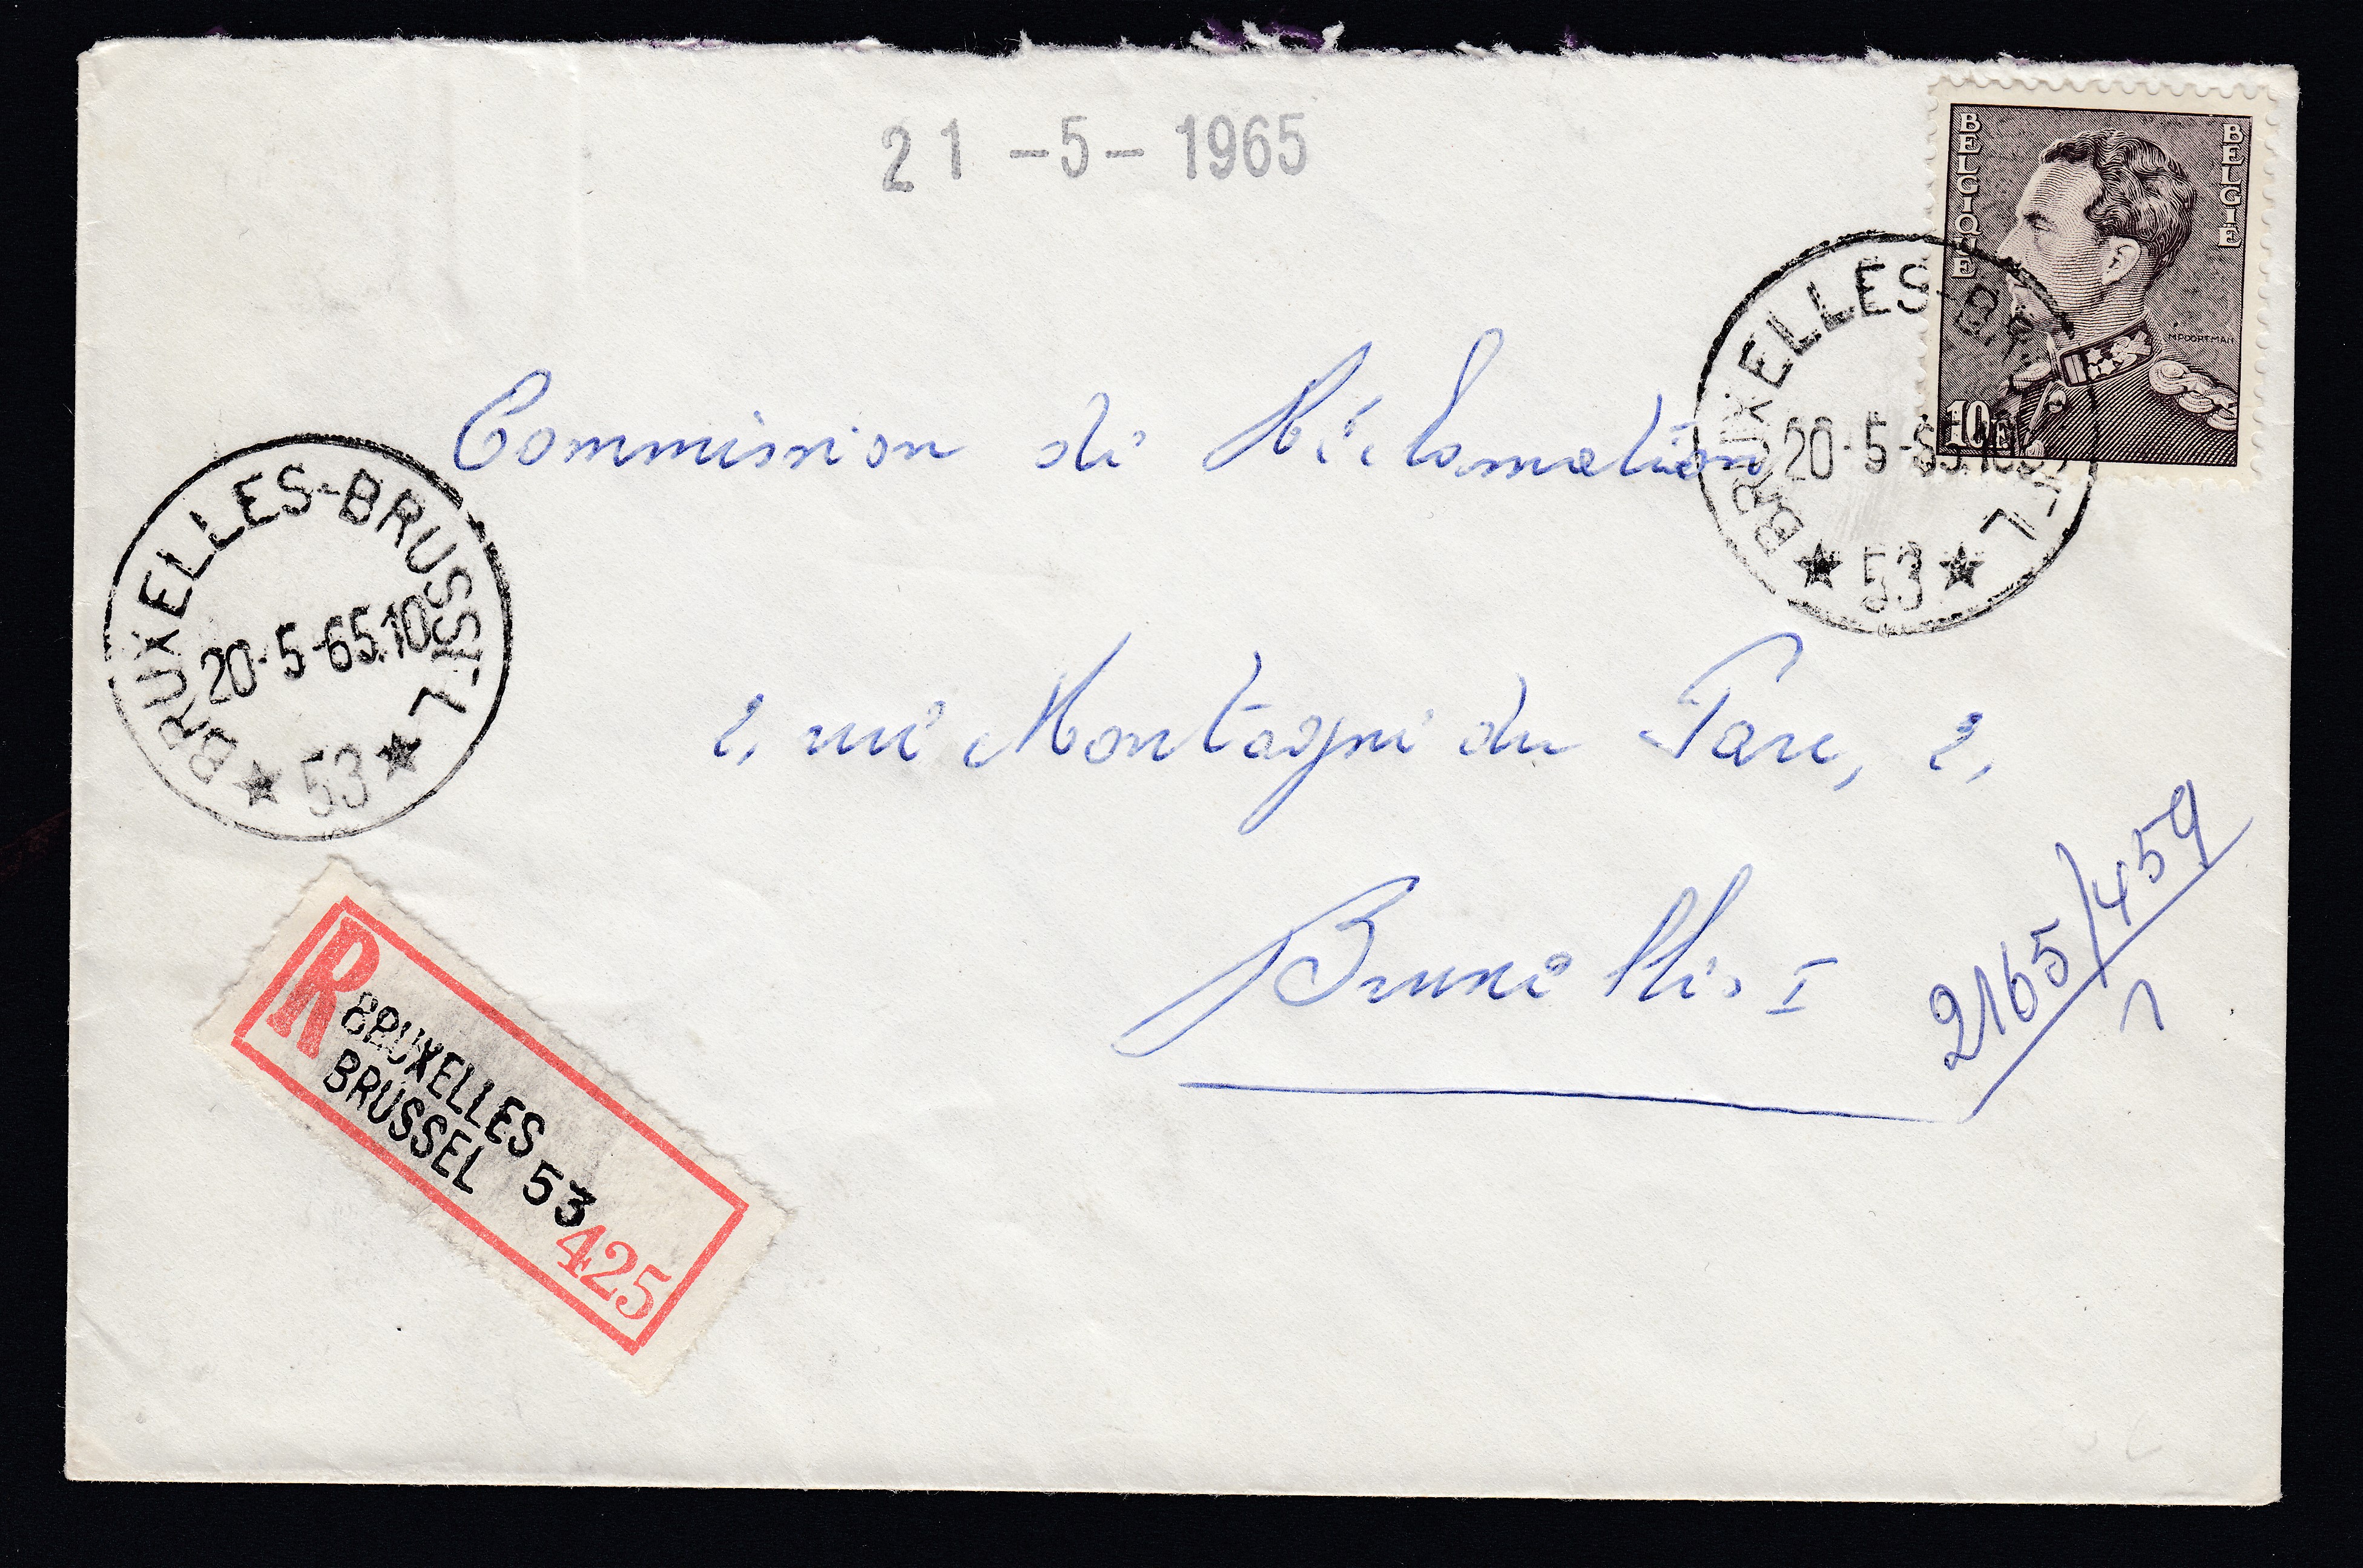 21 -5- 1965
BELGIQUE
BELGIË
M.POORTMAN
10
BRUXELLES-BR L
20-5-65.10
★ 53 ★
Commission de Réclamation
BRUXELLES-BRUSSEL
20-5-65.10
★ 53 ★
2, rue Montagne du Parc, 2,
Bruxelles I
2165/459
1
R
BRUXELLES
BRUSSEL
53
425